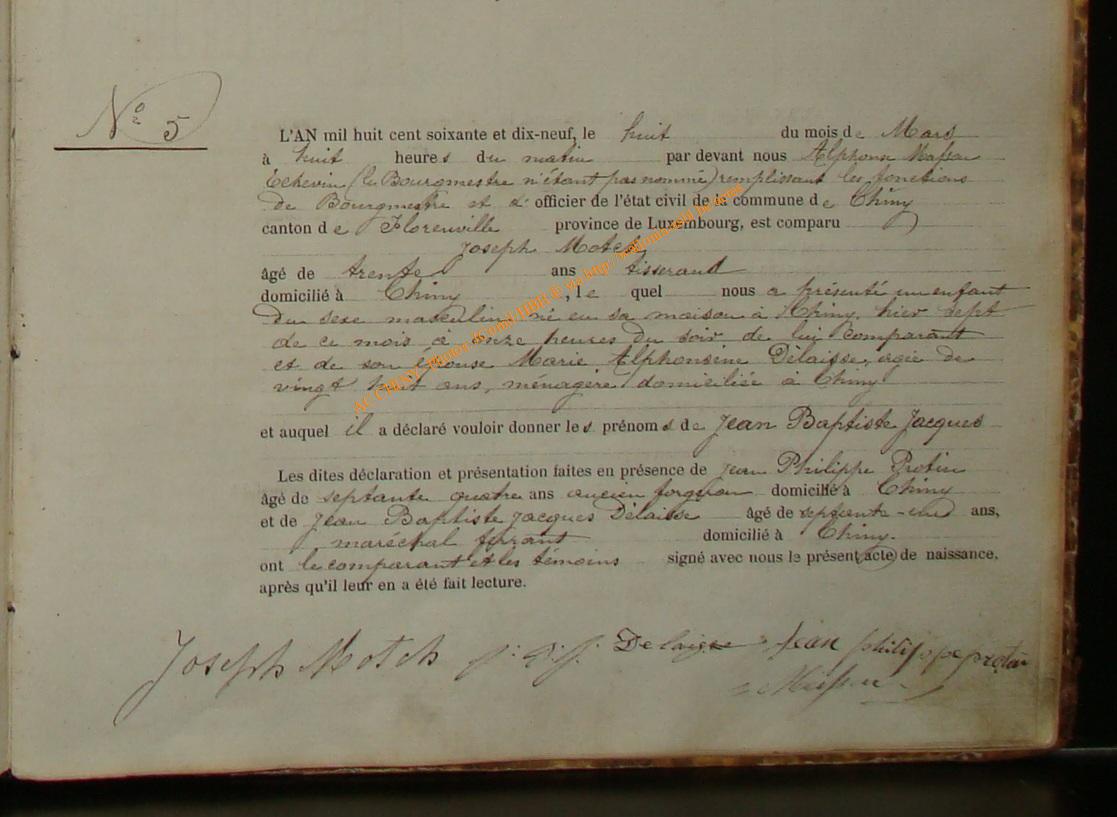 N° 5
L'AN mil huit cent soixante et dix-neuf, le huit du mois de Mars
à huit heures du matin par devant nous Alphonse Masson
Echevin (le Bourgmestre n'étant pas nommé) remplissant les fonctions
de Bourgmestre et d' officier de l'état civil de la commune de Chiny
canton de Florenville province de Luxembourg, est comparu
Joseph Motch
âgé de trente ans tisserand
domicilié à Chiny, le quel nous a présenté un enfant
du sexe masculin né en sa maison à Chiny, hier sept
de ce mois à onze heures du soir de lui comparant
et de son épouse Marie Alphonsine Délaisse, agée de
vingt huit ans, ménagère domiciliée à Chiny
et auquel il a déclaré vouloir donner les prénoms de Jean Baptiste Jacques
Les dites déclaration et présentation faites en présence de Jean Philippe Protin
âgé de septante quatre ans ancien domicilié à Chiny
et de Jean Baptiste Jacques Délaisse âgé de septante-un ans,
maréchal ferrant domicilié à Chiny.
ont le comparant et les témoins signé avec nous le présent acte de naissance,
après qu'il leur en a été fait lecture.
Joseph Motch j. B. j. Delaisse jean philippe protin
Masson
AC CHINY